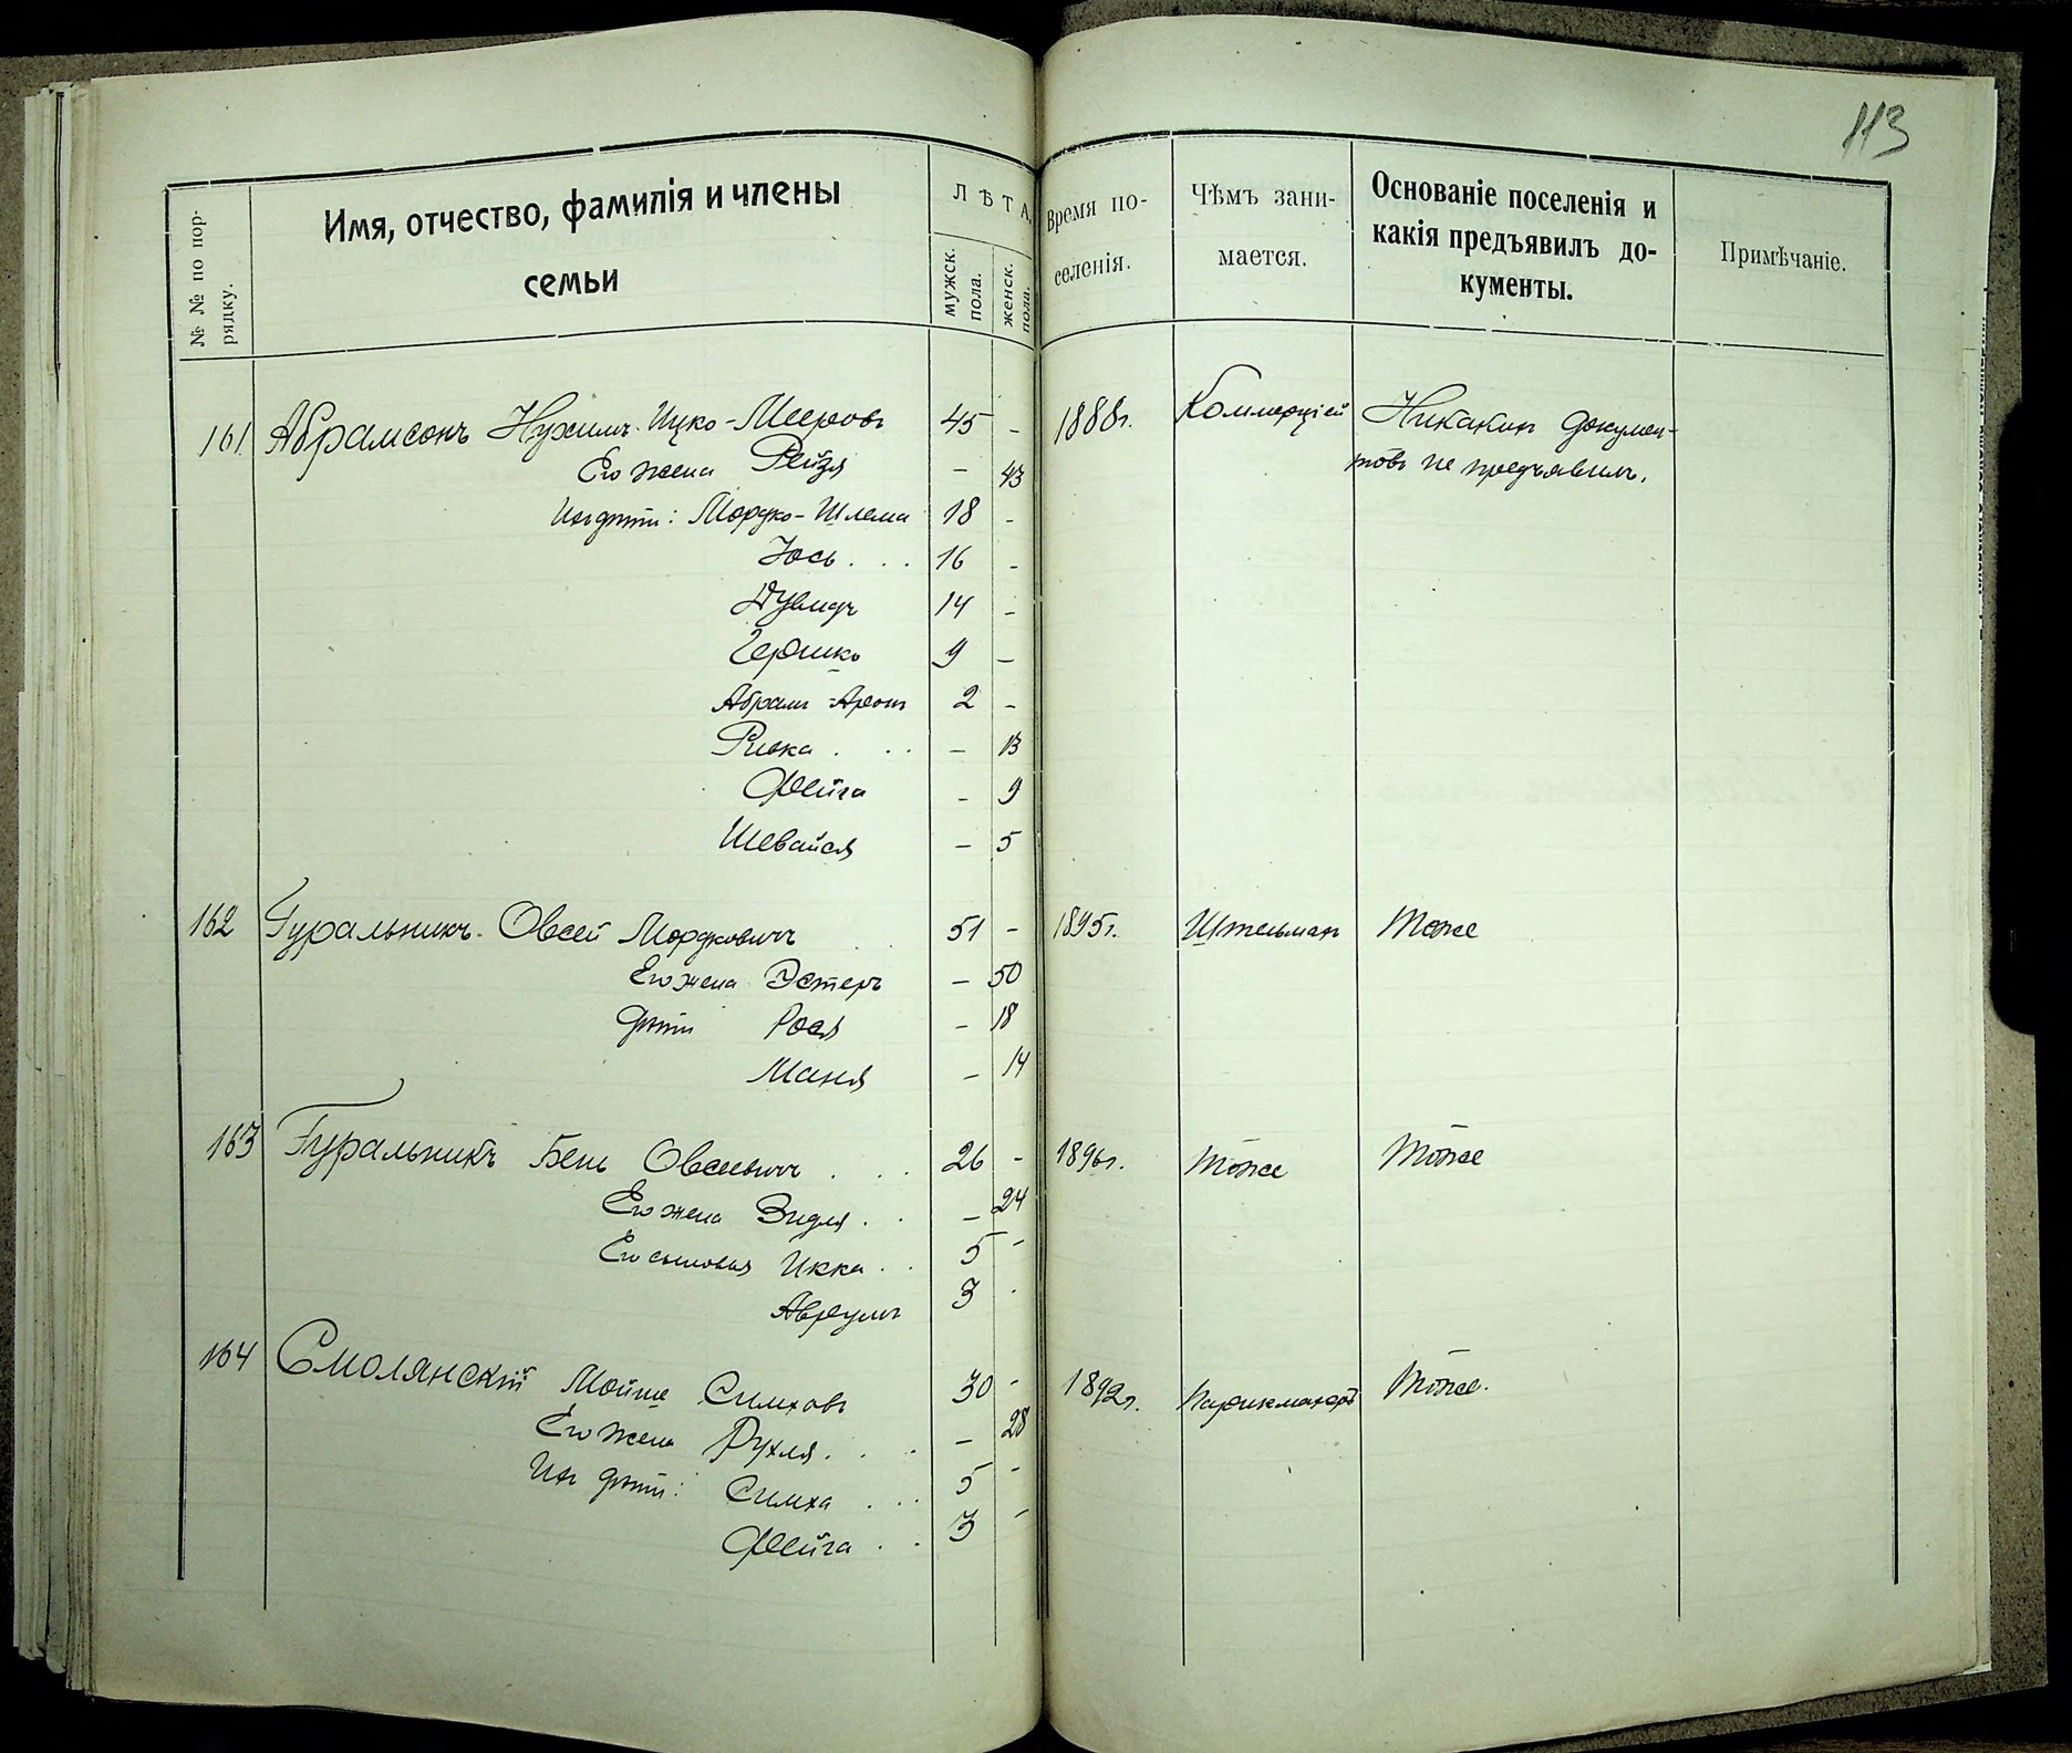 113
№ № по пор-
рядку.
Имя, отчество, фамилія и члены
семьи
ЛѢТА.
мужск.
пола.
женск.
пола.
Время по-
селенія.
Чѣмъ зани-
мается.
Основаніе поселенія и
какія предъявилъ до-
кументы.
Примѣчаніе.
161 Абрамсонъ Нухимъ Ицко-Мееровъ 45 - 1888г. Коммерціей Никакихъ докумен-
Его жена Рейзя - 43 товъ не предъявилъ.
Ихъ дѣти: Мордко-Шлема 18 -
Юсь . . . 16 -
Дувидъ 14 -
Гершко 9 -
Абрамъ-Аронъ 2 -
Ривка . . . - 13
Фейга - 9
Шевайся - 5
162 Гуральникъ Овсей Мордковичъ 51 - 1895г. Тоже
Его жена Эстеръ - 50
Дѣти Рося - 18
Маня - 14
163 Гуральникъ Бень Овсеевичъ . . . 26 - 1896г. Тоже Тоже
Его жена Зидля . . - 24
Его сыновья Икка . . 5 -
Аврумъ 3 -
164 Смолянскій Мойше Симховъ 30 - 1892г. Парикмахеръ Тоже.
Его жена Рухля . . . - 28
Ихъ дѣти: Симха . . . 5 -
Фейга . . 3 -